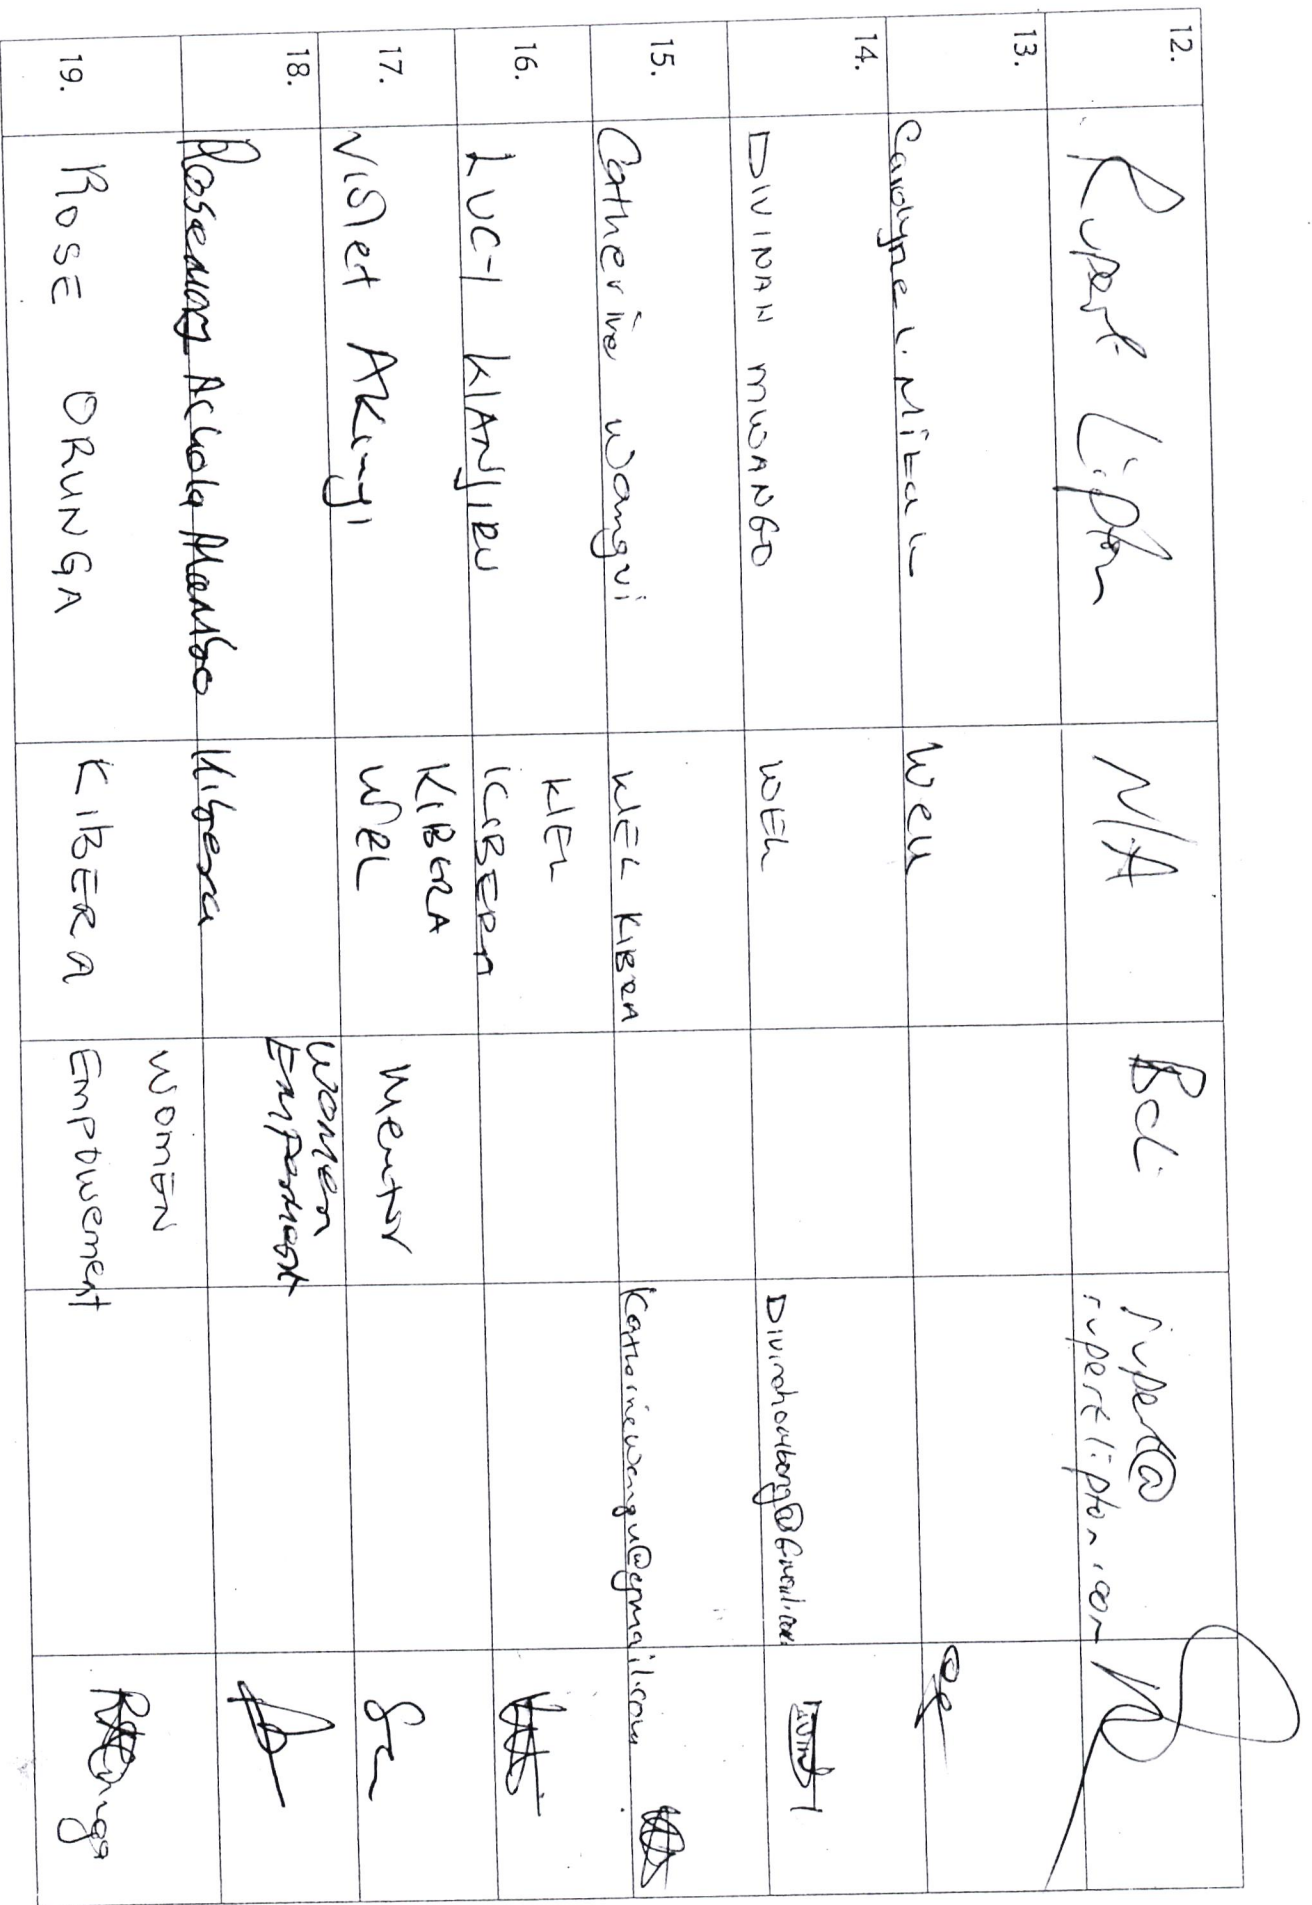 12. Rupert Lipton N/A Bcl. rupert@
rupertlipton.com
13. Carolyne L. Mitau Well
14. DIVINAH MWANGO WEL Divinahombong@Gmail.com
15. Catherine wangui WEL KIBRA Katherinewangu@gmail.com
16. LUCY WANJIRU WEL
KIBERA
17. Violet AKinyi KIBERA
WEL Mentor
18. Rosemary Achola Mambo Kibera Women
Empowerment
19. ROSE ORUNGA KIBERA WOMEN
Empowement